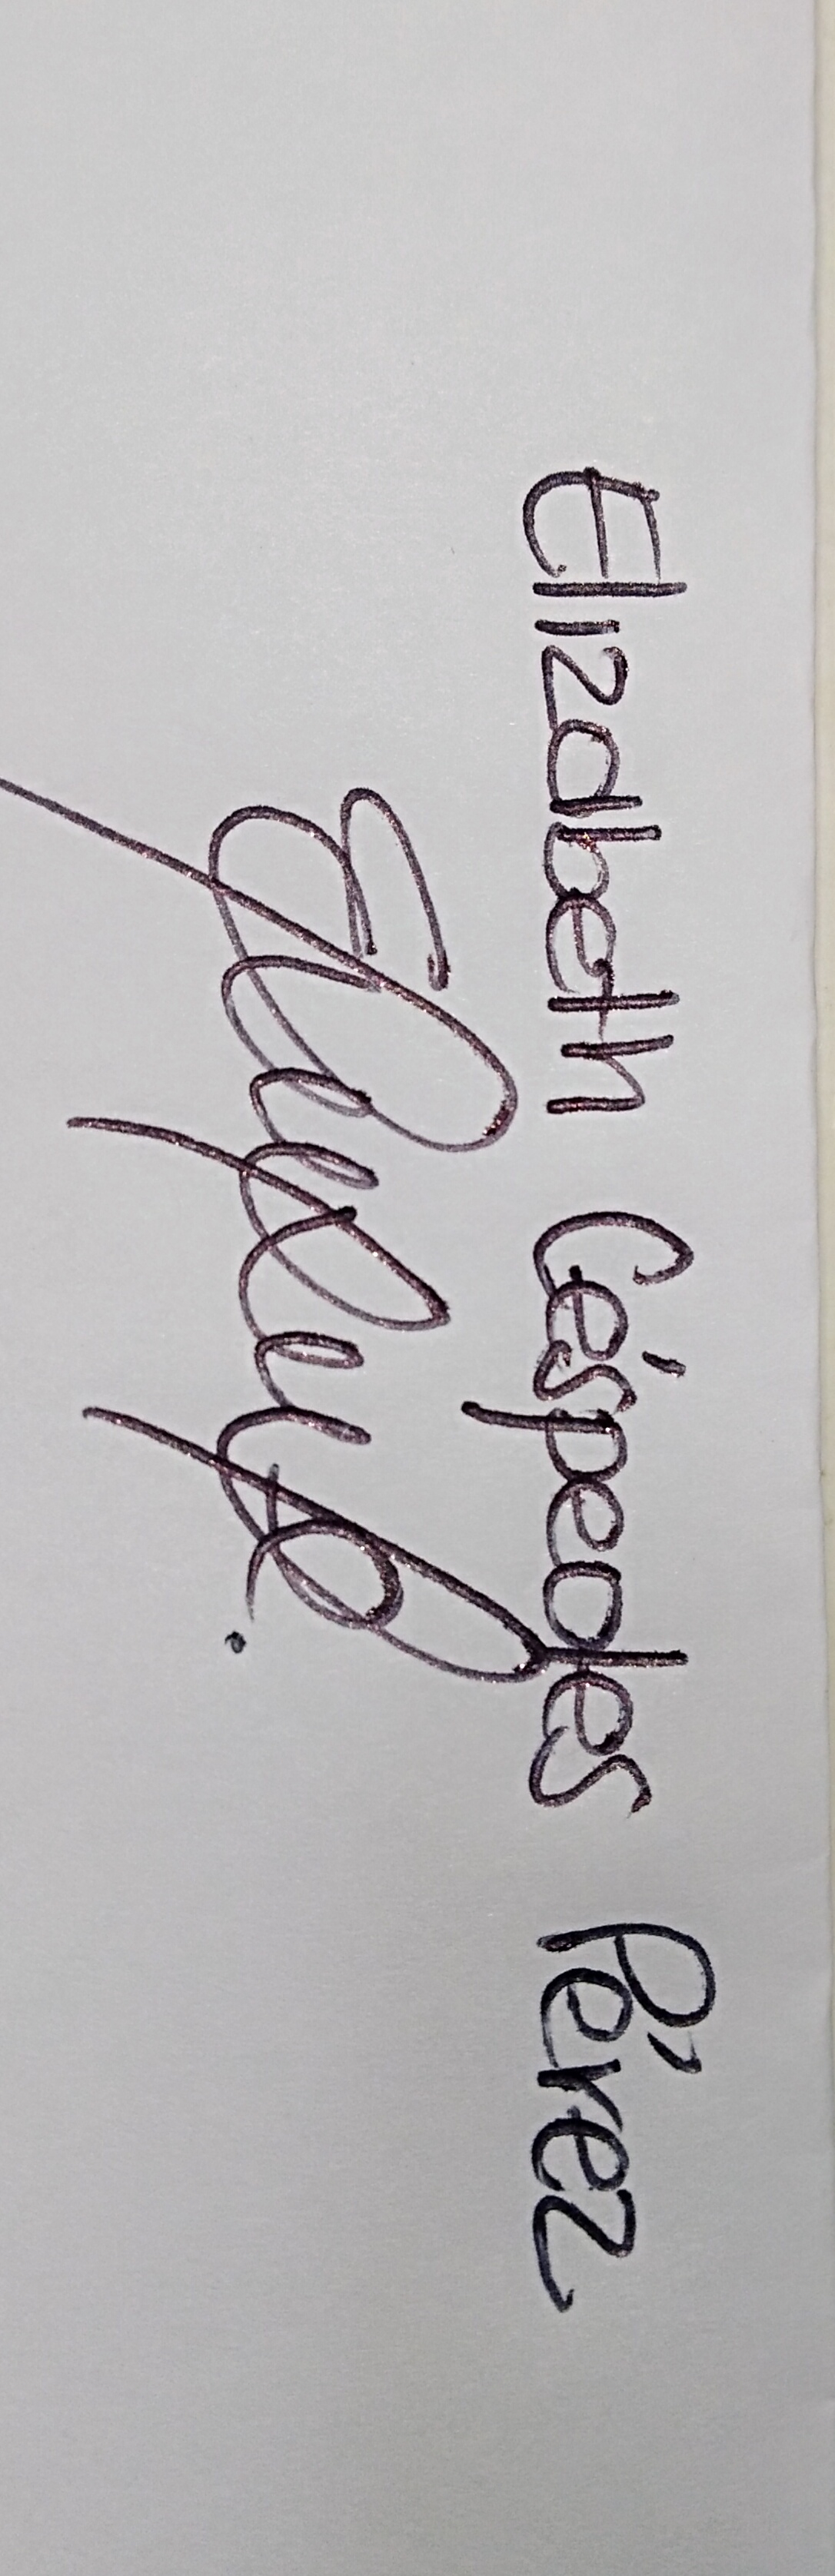 Elizabeth Céspedes Pérez